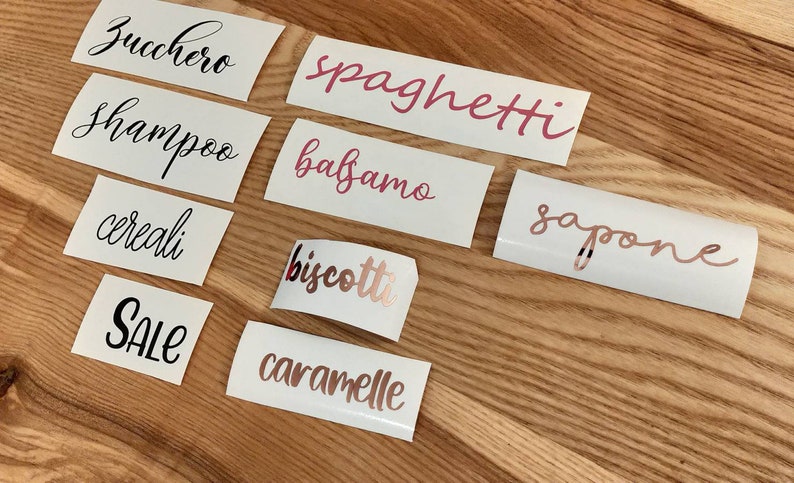 Zucchero
shampoo
cereali
SALE
spaghetti
balsamo
biscotti
caramelle
sapone